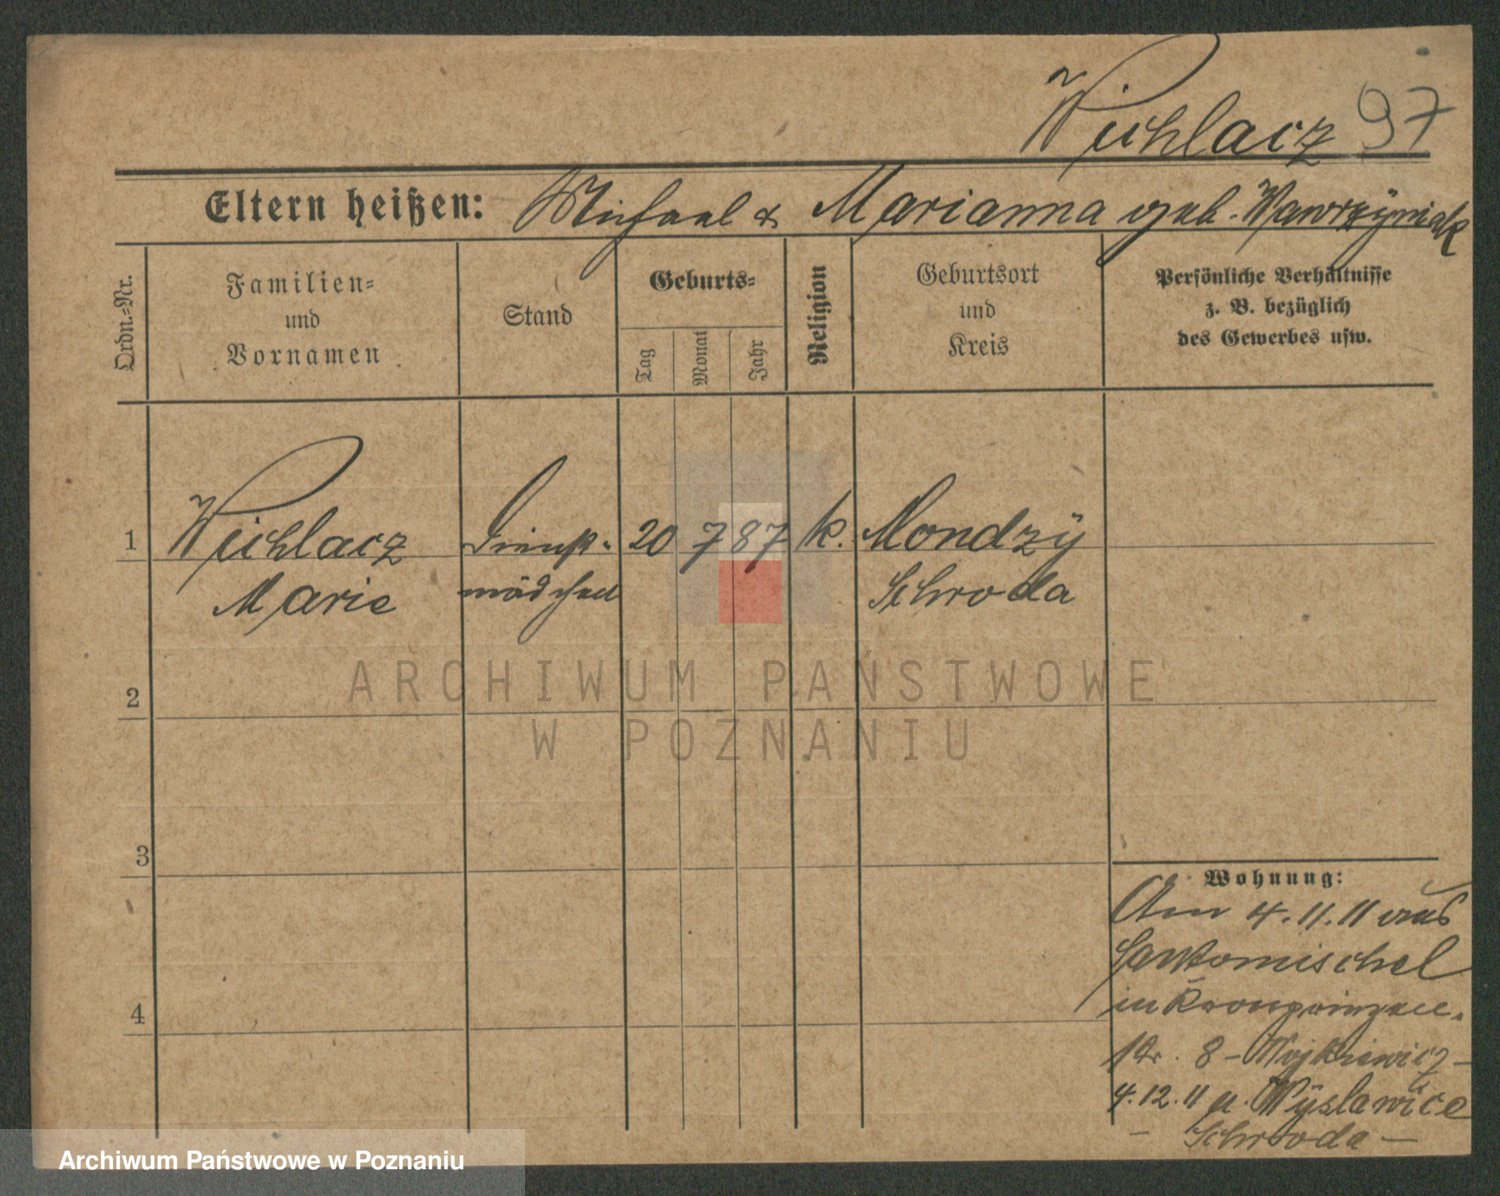 Wichlacz 97
Eltern heißen: Michael & Marianna geb. Wawrzÿniak
Ordn.-Nr.
Familien-
und
Vornamen
Stand
Geburts-
Tag
Monat
Jahr
Religion
Geburtsort
und
Kreis
Persönliche Verhältnisse
z. B. bezüglich
des Gewerbes usw.
1 Wichlacz Dienst- 20 7 87 k. Mondzÿ
Marie mädchen Schroda
2
3
4
Wohnung:
Am 4.11.11 aus
Santomischel
in Kronprinzen-
str. 8 - Wojkiewicz -
4.12.11 n. Wÿslawice
- Schroda -
ARCHIWUM PAŃSTWOWE
W POZNANIU
Archiwum Państwowe w Poznaniu